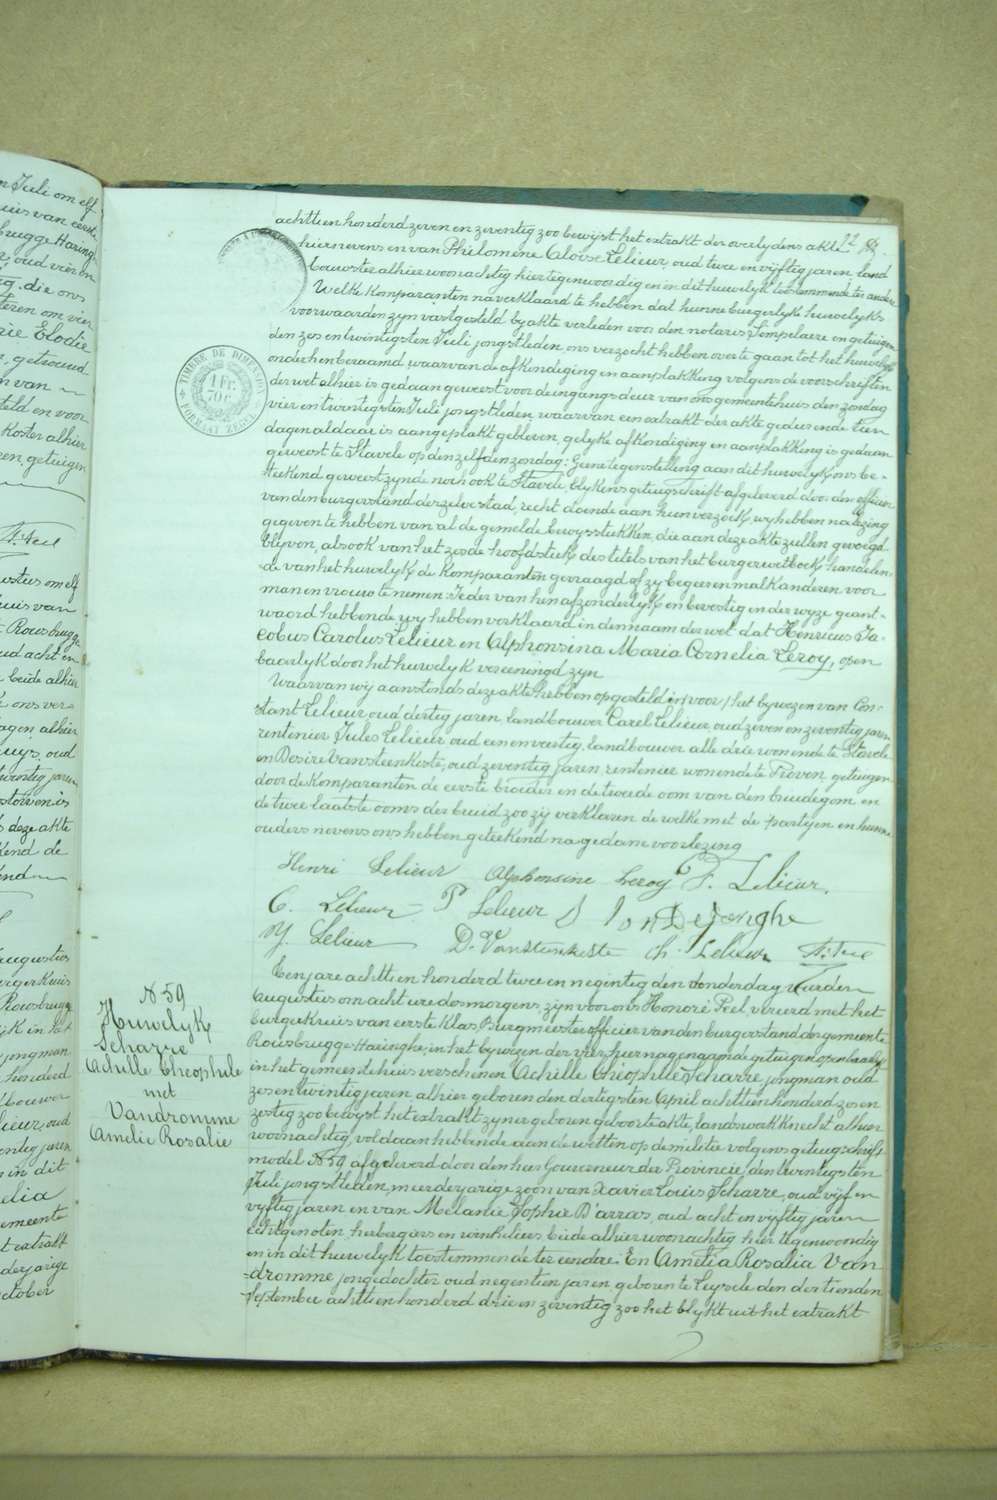 achttien honderd zeven en zeventig zoo bewijst het extrakt der overlydens akte
hiernevens en van Philomene Aloise Lelieur, oud twee en vijftig jaren land
bouwster alhier woonachtig hier tegenwoordig en in dit huwelyk toestemmende ter andere
Welke komparanten na verklaard te hebben dat hunne burgerlyke huwelyks
voorwaarden zyn vastgesteld by akte verleden voor den notaris Sompelaere en getuigen
den zes en twintigsten Juli jongstleden, ons verzocht hebben over te gaan tot het huwelyk
onder hen beraamd waarvan de afkondiging en aanplakking volgens de voorschriften
der wet alhier is gedaan geweest voor de ingangs deur van ons gemeentehuis den zondag
vier en twintigsten Juli jongstleden, waarvan een extrakt der akte gedurende tien
dagen aldaar is aangeplakt gebleven, gelyke afkondiging en aanplakking is gedaan
geweest te Stavele op den zelfden zondag: Geene tegenstelling aan dit huwelyk ons be-
teekend geweest zynde noch ook te Stavele, blykens getuigschrift afgeleverd door den officier
van den burgerstand derzelve stad, recht doende aan hun verzoek, wy hebben na lezing
gegeven te hebben van al de gemelde bewysstukken, die aan deze akte zullen gevoegd
blyven, alsook van het zesde hoofdstuk des titels van het burgerwetboek handelen-
de van het huwelyk de komparanten gevraagd of zy begeeren malkanderen voor
man en vrouw te nemen. Ieder van hen afzonderlyk en bevestigender wyze geant-
woord hebbende wy hebben verklaard in den naam der wet dat Henricus Ja-
cobus Carolus Lelieur en Alphonsina Maria Cornelia Leroy, open
baarlyk door het huwelyk vereenigd zyn
Waarvan wij aanstonds deze akte hebben opgesteld in voor het bywezen van Con-
stant Lelieur oud dertig jaren, landbouwer Carel Lelieur, oud zeven en zeventig jaren
rentenier Jules Lelieur oud een en veertig, landbouwer alle drie wonende te Stavele
en Desiré Vansteenkeste, oud zeventig jaren, rentenier wonende te Proven, getuigen
door de komparanten de eerste broeder en de tweede oom van den bruidegom en
de twee laatste ooms der bruid zoo zij verklaren de welke met de partyen en hunne
ouders nevens ons hebben geteekend na gedane voorlezing
Henri Lelieur Alphonsine Leroy F. Lelieur.
C. Lelieur P Lelieur Dejonghe
J. Lelieur D. Vansteenkeste Ch. Lelieur
N 59
Huwelyk
Scharre
Achille Theophile
met
Vandromme
Amelie Rosalie
Een jare achttien honderd twee en negentig den donderdag vierden
Augustus om acht ure des morgens, zyn voor ons Honoré Peel vereerd met het
burgerkruis van eerste klas, Burgmeester officier van den burgerstand der gemeente
Rousbrugge Haringhe, in het bywezen der vier hiernagenaamde getuigen openbaarlyk
in het gemeentehuis verschenen Achille Theophile Scharre jongman oud
zes en twintig jaren alhier geboren den dertigsten April achttien honderd zes en
zestig zoo bewyst het extrakt zyner geboren geboorteakte, landswerkknecht alhier
woonachtig, voldaan hebbende aan de wetten op de militie volgens getuigschrift
model N 59 afgeleverd door den heer Gouverneur der Provincie, den twintigsten
Juli jongstleden, meerderjarige zoon van Xavier Louis Scharre, oud vijf en
vyftig jaren en van Melanie Sophie D'arras, oud acht en vyftig jaren
echtgenoten, herbergiers en winkeliers beide alhier woonachtig hier tegenwoordig
en in dit huwelyk toestemmende ter eendre: En Amelia Rosalia Van
dromme jongedochter oud negentien jaren geboren te Leysele den der tienden
September achttien honderd drie en zeventig zoo het blykt uit het extrakt
TIMBRE DE DIMENSION
1 Fr.
70 c
FORMAAT ZEGEL